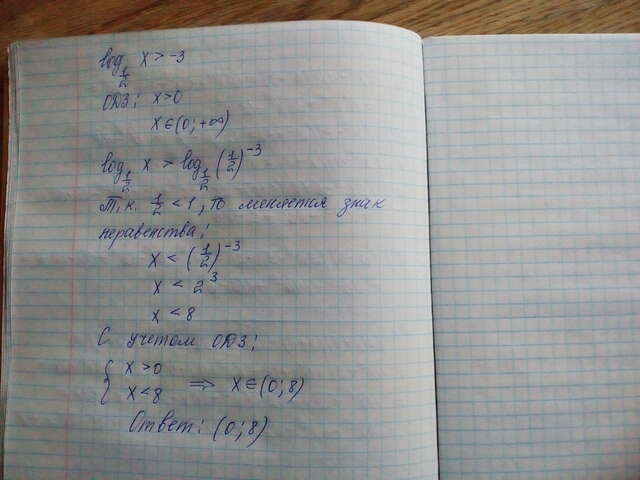 log_{1/2} x > -3
ОДЗ: x>0
x∈(0;+∞)
log_{1/2} x > log_{1/2} (1/2)^{-3}
Т.к. 1/2 < 1, то меняется знак
неравенства:
x < (1/2)^{-3}
x < 2^3
x < 8
С учетом ОДЗ:
{ x >0
x<8 ⇒ x∈(0;8)
Ответ: (0;8)